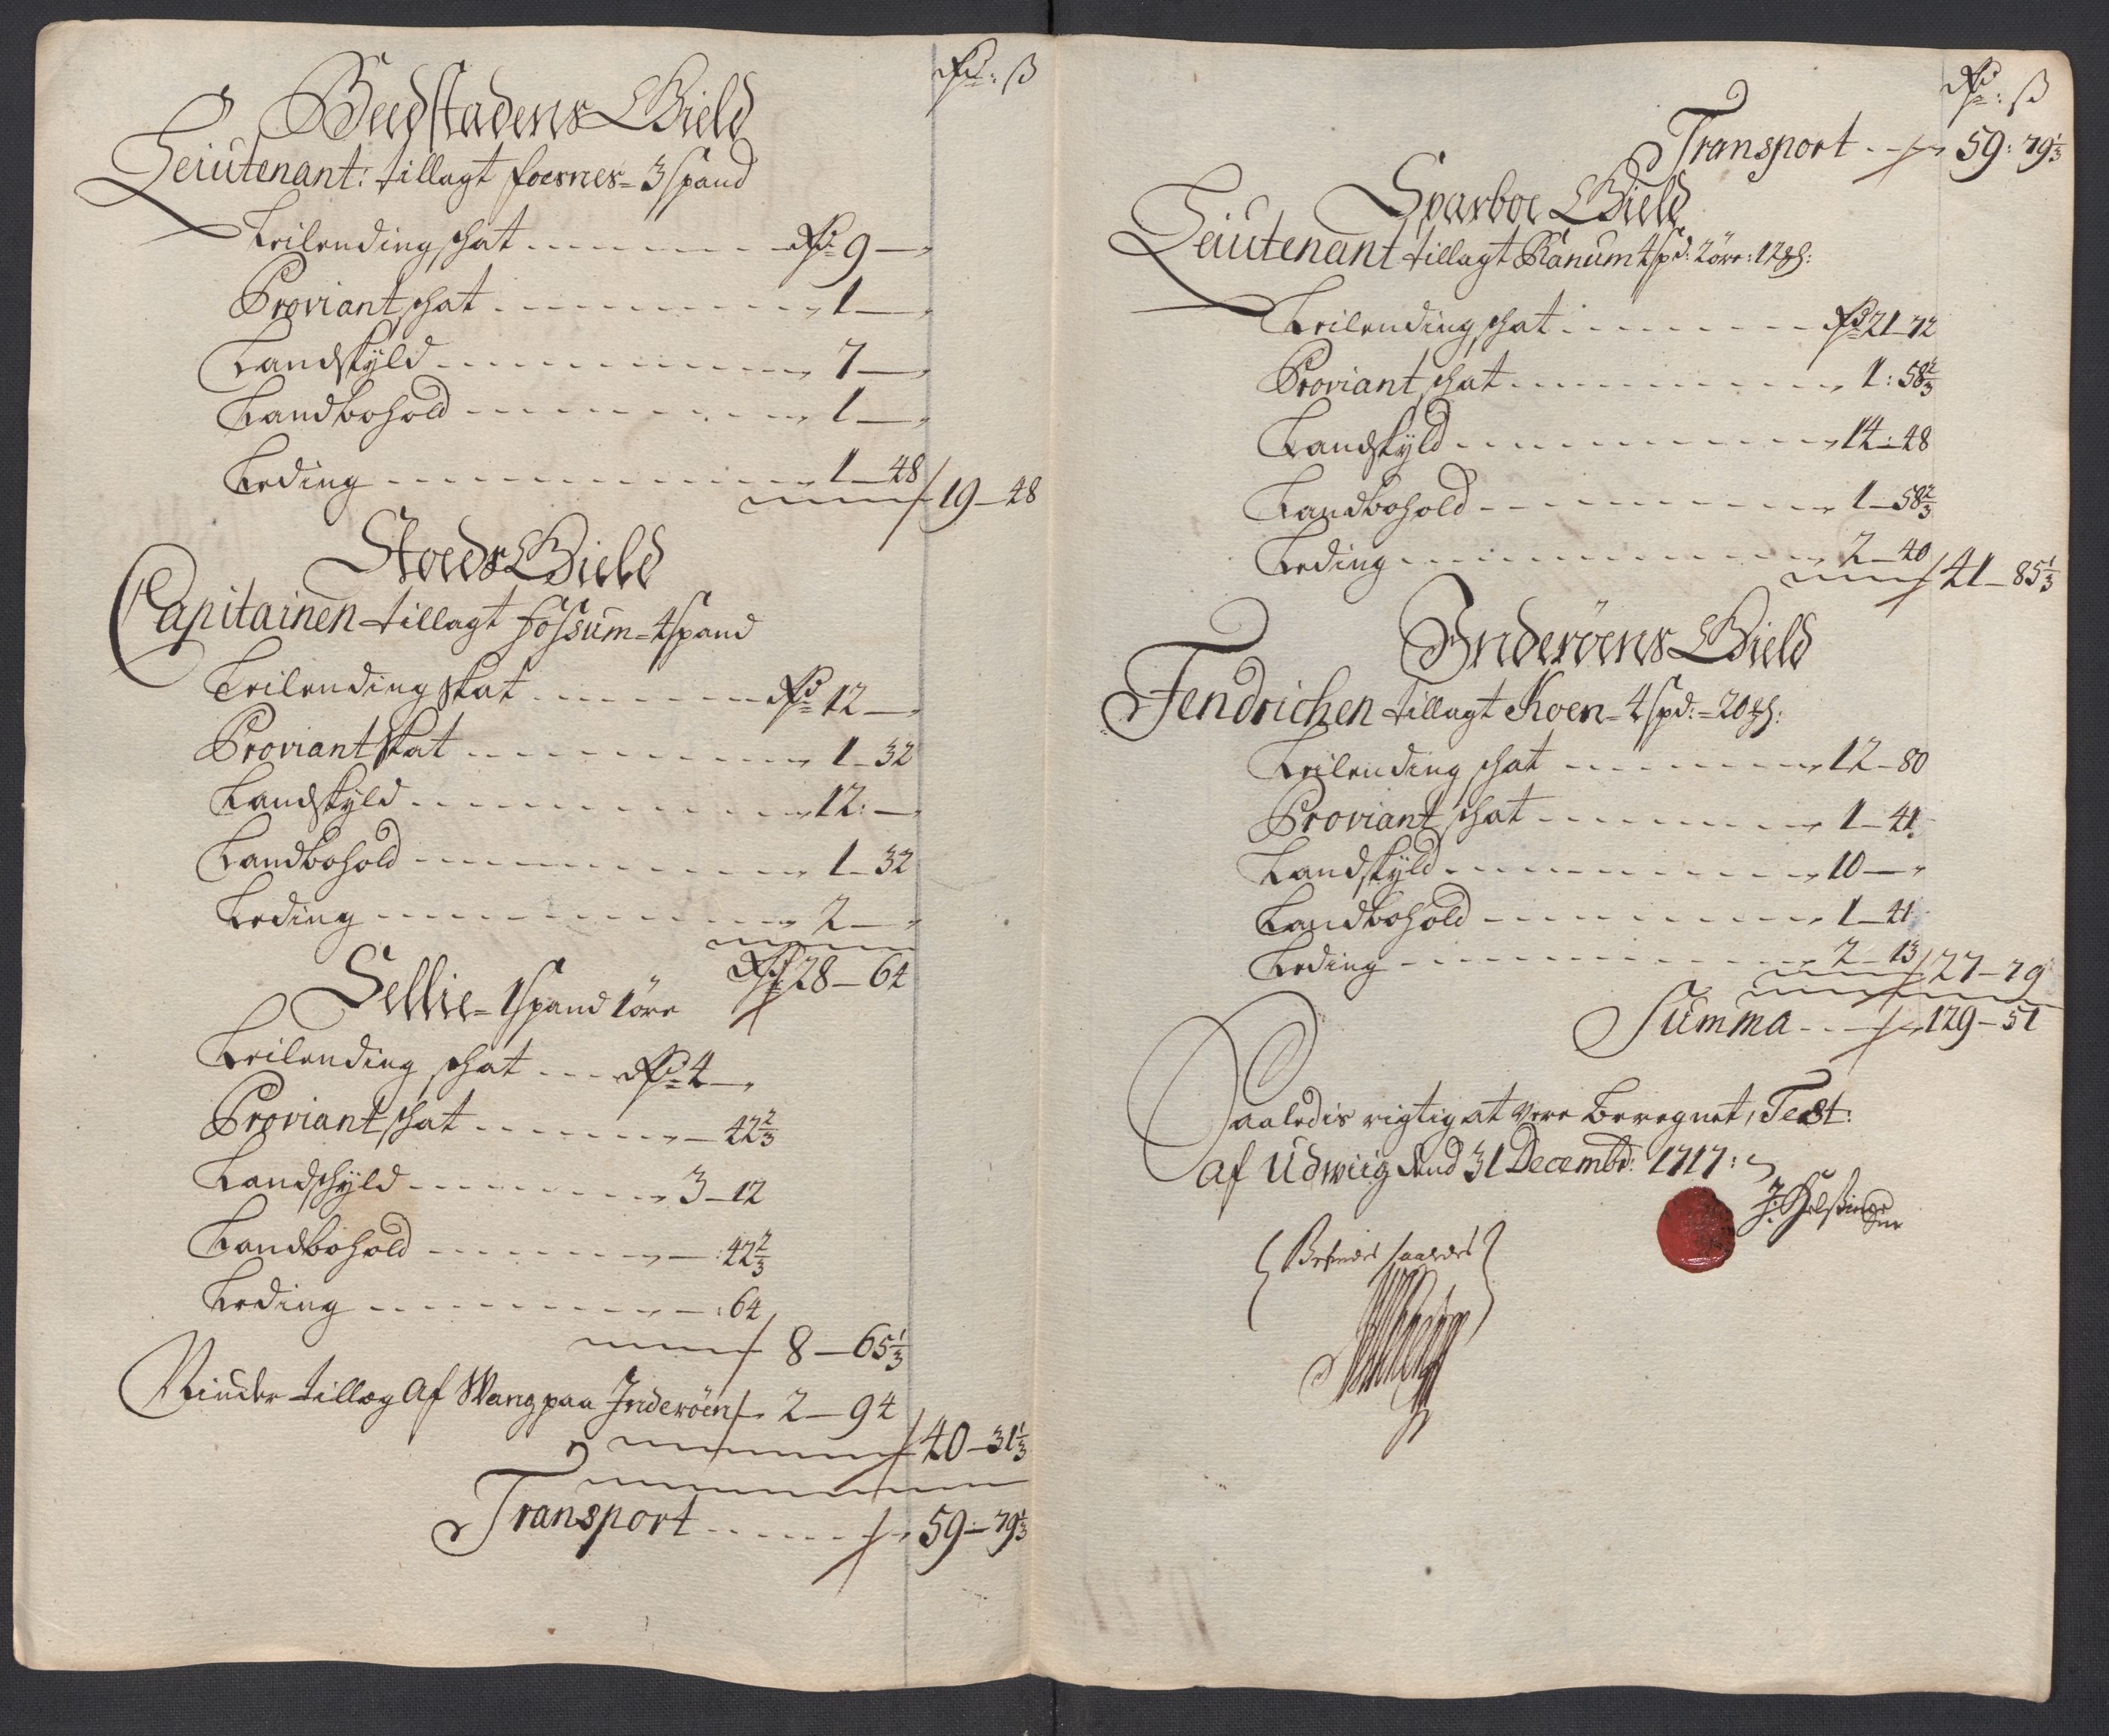 Rd: ß
Beedstadens Gield
Leiutenant: tillagt foesnes = 3 spand
Leilending schat Rd 9 —
Proviant schat 1 —
Landskyld 7 —
Landbohold 1 —
Leding 1 — 48
19 — 48
Stoeds Gield
Capitainen tillagt Fossum = 4 spand
Leilending skat Rd 12 —
Proviant skat 1 — 32
Landskyld 12: —
Landbohold 1 — 32
Leding 2 —
Rd 28 — 64
Sellie = 1 spand 1 øre
Leilending schat Rd 4 —
Proviant schat — 42 2/3
Landschyld 3 — 12
Landbohold — : 42 2/3
Leding — : 64
8 — 65 1/3
Vinder tillæg Af Wang paa Inderøen 2 — 94
40 — 31 1/3
Transport 59 — 79 1/3
Rd: ß
Transport 59: 79 1/3
Sparboe Gield
Leiutenant tillagt Hanum 4 spd: 2 øre: 12
Leilending schat Rd 21 — 72
Proviant schat 1: 58 2/3
Landskyld 14 — 48
Landbohold 1 — 58 2/3
Leding 2 — 40
41 — 85 1/3
Inderøens Gield
Fendrichen tillagt Koen = 4 spd: = 20
Leilending schat 12 — 80
Proviant schat 1 — 41
Landskyld 10 —
Landbohold 1 — 41
Leding 2 — 13
27 — 79
Summa 129 — 51
Saaledis rigtig at vere beregnet, Test:
Af Udwiig dend 31 Decembr: 1717:
Befindes saaledes